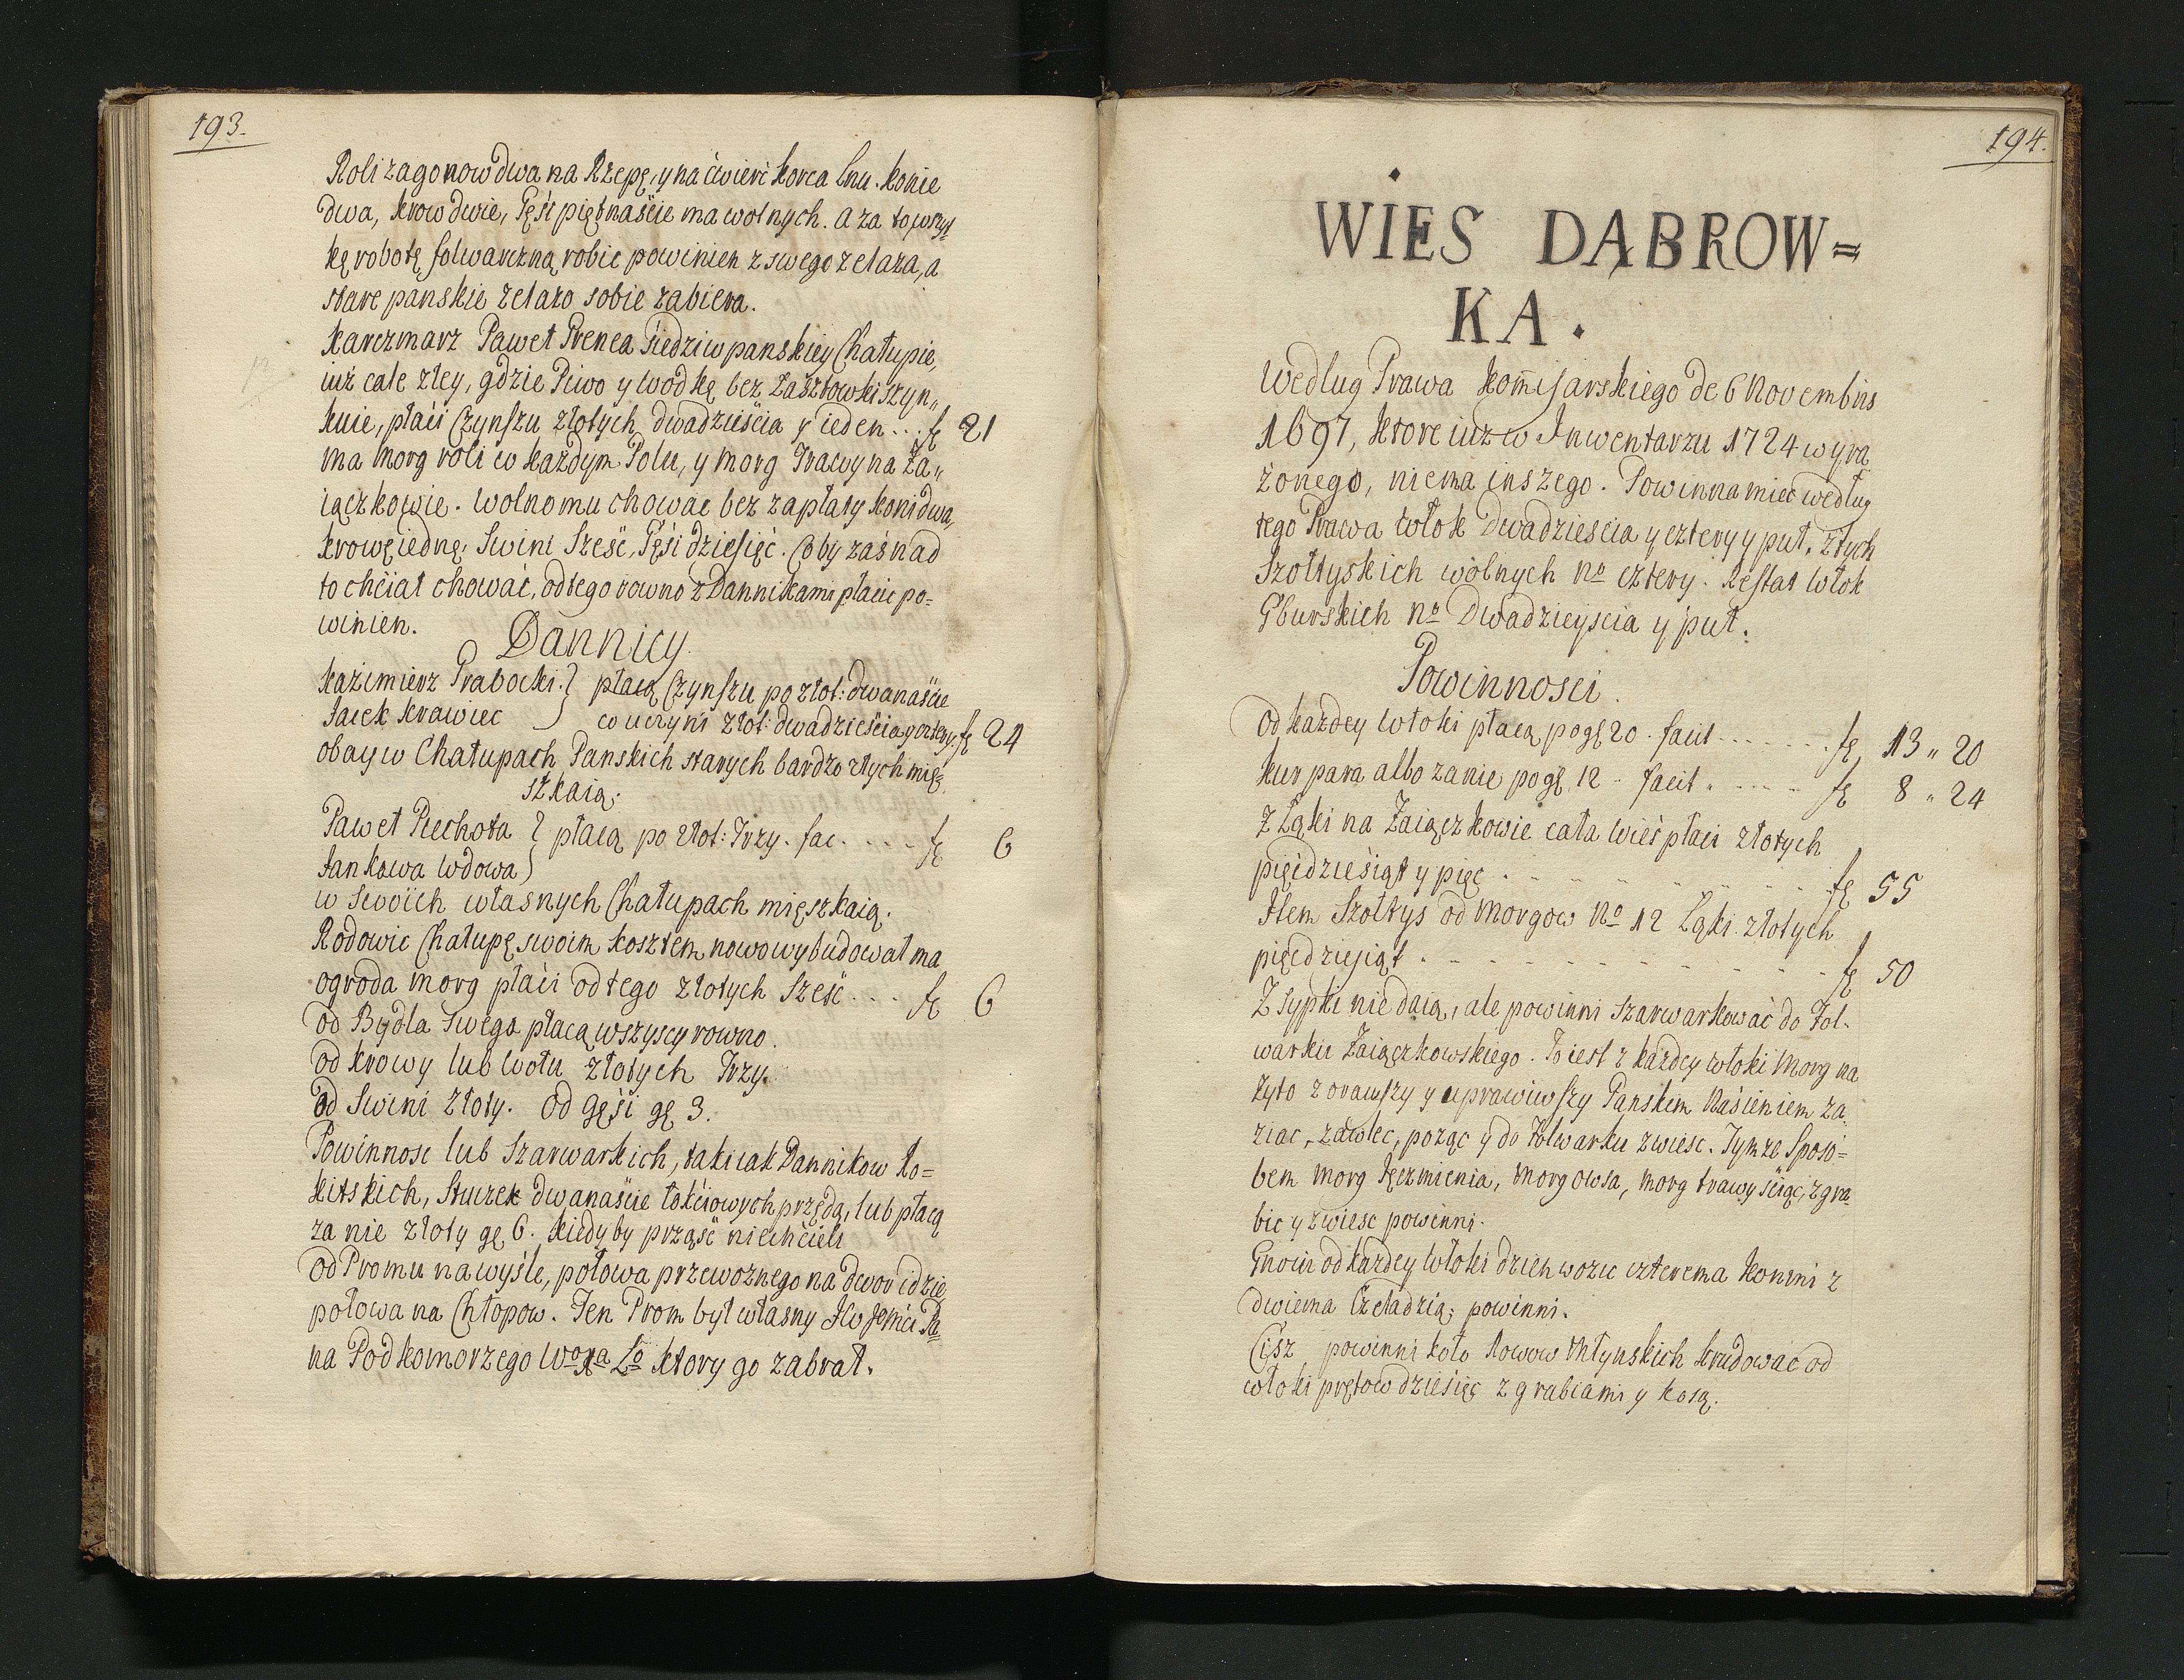 193.
Roli zagonow dwa na Rzepę, y na ćwierć korca lnu. Konie
dwa, krow dwie, Gęśi piętnaśćie ma wolnych. A za to wszyt=
kę robotę folwarczną robic powinien z swego zelaza, a
stare panskie zelazo sobie zabiera.
Karczmarz Paweł Prenca śiedzi w panskiey Chałupie,
iuż cale złey, gdzie Piwo y wodkę bez Zasztowki szyn„
kuie, płaći Czynszu złotych dwadzieśćia y ieden... fę 21
ma morg roli w każdym Polu, y morg Trawy na Za„
iączkowie. Wolno mu chowac bez zapłaty koni dwa,
krowę iednę, Swini Sześć, Gęśi dziesięć. Coby zaś nad
to chćiał chować, od tego rowno z Dannikami płacic po=
winien.
Dannicy.
Kaźimierz Prabocki } płacą Czynszu po złot: dwanaśćie
Jacek Krawiec } co uczyni złot: dwadzieśćia y cztery. fę 24
obay w Chałupach Panskich starych bardzo złych mię=
szkaią.
Paweł Piechota } płacą po złot: Trzy. fac. . . . . fę 6
Jankowa wdowa }
w swoich własnych Chałupach mięszkaią.
Rodowic Chałupę swoim kosztem nowo wybudował ma
ogroda morg płaći od tego złotych Sześć . . . fę 6
od Bydła swego płacą wszyscy rowno.
od krowy lub wołu złotych Trzy.
od Swini złoty. od gęśi gę 3.
Powinnosc lub Szarwarkich, taki iak Dannikow Ło=
kitskich, Sztuczek dwanaśćie łokćiowych przędą, lub płacą
za nie złoty gę 6. kiedy by prząść niechćieli
od Promu na wyśle, połowa przewoznego na dwor idzie
połowa na Chłopow. Ten Prom był własny JW Jemći Pa=
na Podkomorzego ktory go zabrał.
194.
WIES DĄBROW=
KA.
Według Prawa Kom̄isarskiego de 6 Novembris
1697, ktore iuz w Inwentarzu 1724 wyra
żonego, niema inszego. Powinna miec według
tego Prawa włok Dwadziescia y cztery y puł, z tych
Szołtyskich wolnych No cztery. Restat włok
Gburskich No Dwadzieyscia y puł.
Powinnosci.
Od każdey Włoki płacą po gę 20. facit . . . . . . . fę 13 „ 20
Kur para albo za nie po gę 12 - facit . . . . . fę 8 „ 24
Z Łąki na Zaiączkowie cała wieś płaci złotych
pięćdzieśiąt y pięc . . . . . . . . . . fę 55
Item Szołtys od Morgow No 12 Łąki złotych
pięcdziesiąt . . . . . . . . . . . . fę 50
Zsypki nie daią, ale powinni szarwarkować do Fol-
warku Zaiączkowskiego. To iest z każdey włoki Morg na
żyto zorawszy y uprawiwszy Panskim Naśieniem za
ziac, zawlec, pożąc y do Folwarku zwiesc. Tymże Sposo=
bem morg Jęczmienia, morg owsa, morg trawy śćiąc, zgra
bic y zwiesc powinni.
Gnoiu od każdey Włoki dzien wozic czterema końmi z
dwiema Czeladzią powinni.
Ciśz powinni koło Rowow Młynskich krudować od
włoki prętow dzieśięc z grabiami y kosą.